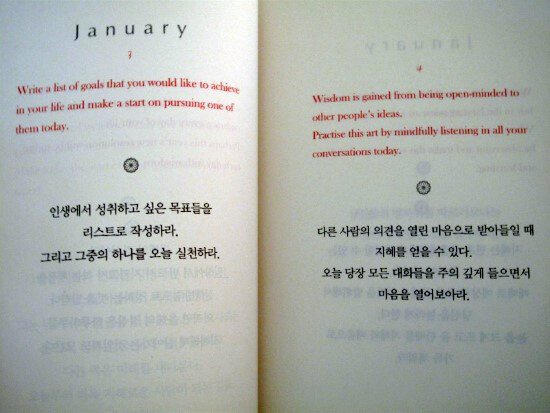 January
3
Write a list of goals that you would like to achieve
in your life and make a start on pursuing one of
them today.
인생에서 성취하고 싶은 목표들을
리스트로 작성하라.
그리고 그중의 하나를 오늘 실천하라.
4
Wisdom is gained from being open-minded to
other people's ideas.
Practise this art by mindfully listening in all your
conversations today.
다른 사람의 의견을 열린 마음으로 받아들일 때
지혜를 얻을 수 있다.
오늘 당장 모든 대화들을 주의 깊게 들으면서
마음을 열어보아라.